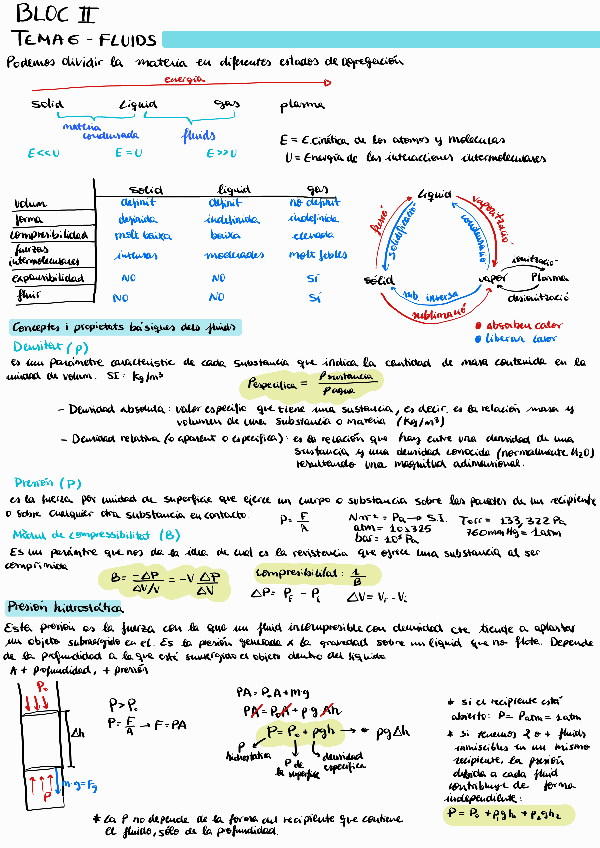 BLOC II
TEMA 6 - FLUIDS
Podemos dividir la materia en diferentes estados de agregación
energía
solid liquid gas plasma
materia condensada fluids
E<<U E=U E>>U
E = E.Cinética de los átomos y moleculas
U = Energía de las interacciones intermoleculares
solid liquid gas
volum definit definit no definit
forma definida indefinida indefinida
compresibilidad molt baixa baixa elevada
fuerzas intermoleculares intensas moderades molt febles
expansibilidad NO NO SÍ
fluir NO NO SÍ
liquid
fusió
solidificació
vaporització
condensació
sòlid
vapor
Plasma
ionització
desionització
sub. inversa
sublimació
absorben calor
liberan calor
Conceptes i propietats bàsiques dels fluids
Densitat (ρ)
es un paràmetre característic de cada substancia que indica la cantidad de masa contenida en la
unidad de volum. SI: Kg/m³
ρespecífica = ρ sustancia / ρ agua
- Densidad absoluta: valor especific que tiene una sustancia, es decir, es la relación masa y
volumen de una substancia o materia (Kg/m³)
- Densidad relativa (o aparent o especifica): es la relación que hay entre una densidad de una
sustancia y una densidad conocida (normalmente H₂O)
resultando una magnitud adimensional.
Presión (P)
es la fuerza por unidad de superficie que ejerce un cuerpo o substancia sobre las paredes de un recipiente
o sobre cualquier otra substancia en contacto.
P = F/A
N·m⁻² = Pa → S.I.
atm = 101325
bar = 10⁵ Pa
Torr = 133,322 Pa
760mmHg = 1atm
Mòdul de compressibilitat (B)
Es un parámetre que nos da la idea de cuál es la resistencia que ofrece una substancia al ser
comprimida
B = -ΔP / ΔV/V = -V ΔP/ΔV
compresibilitat: 1/B
ΔP = Pf - Pi
ΔV = Vf - Vi
Presión hidrostática
Esta presión es la fuerza con la que un fluid incompresible con densidad cte tiende a aplastar
un objeto submergido en el. Es la presión generada x la gravedad sobre un liquid que no flota. Depende
de la profundidad a la que está sumergido el objeto dentro del liquido
A + profundidad, + presión
P₀
Δh
P
m·g = Fg
P > P₀
P = F/A → F = PA
PA = P₀A + mg
PA = P₀A + ρgAh
P = P₀ + ρgh → ρgΔh
P hidrostática
P de la superficie
densidad especifica
* si el recipiente está
abierto: P = Patm = 1atm
* si tenemos 2 o + fluids
inmiscibles en un mismo
recipiente, la presión
debida a cada fluid
contribuye de forma
independiente:
P = P₀ + ρ₁gh₁ + ρ₂gh₂
* La P no depende de la forma del recipiente que contiene
el fluido, sólo de la profundidad.